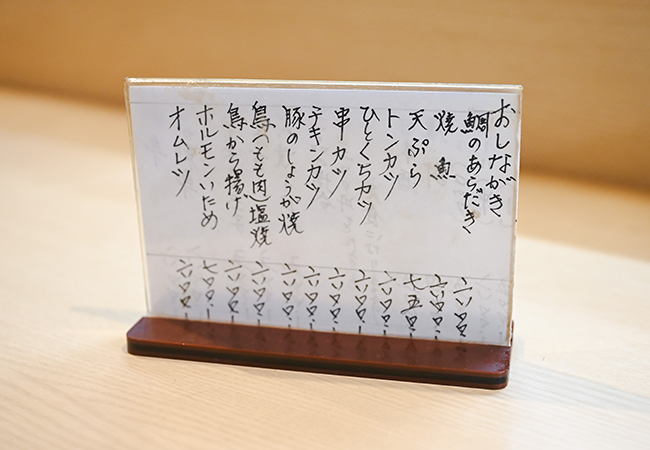 おしながき
鯛のあらだき 六〇〇.ー
焼魚 六〇〇.ー
天ぷら 七五〇.ー
トンカツ 六〇〇.ー
ひとくちカツ 六〇〇.ー
串カツ 六〇〇.ー
チキンカツ 六〇〇.ー
豚のしょうが焼 六〇〇.ー
鳥(もも肉)塩焼 六〇〇.ー
鳥から揚げ 六〇〇.ー
ホルモンいため 七〇〇.ー
オムレツ 六〇〇.ー